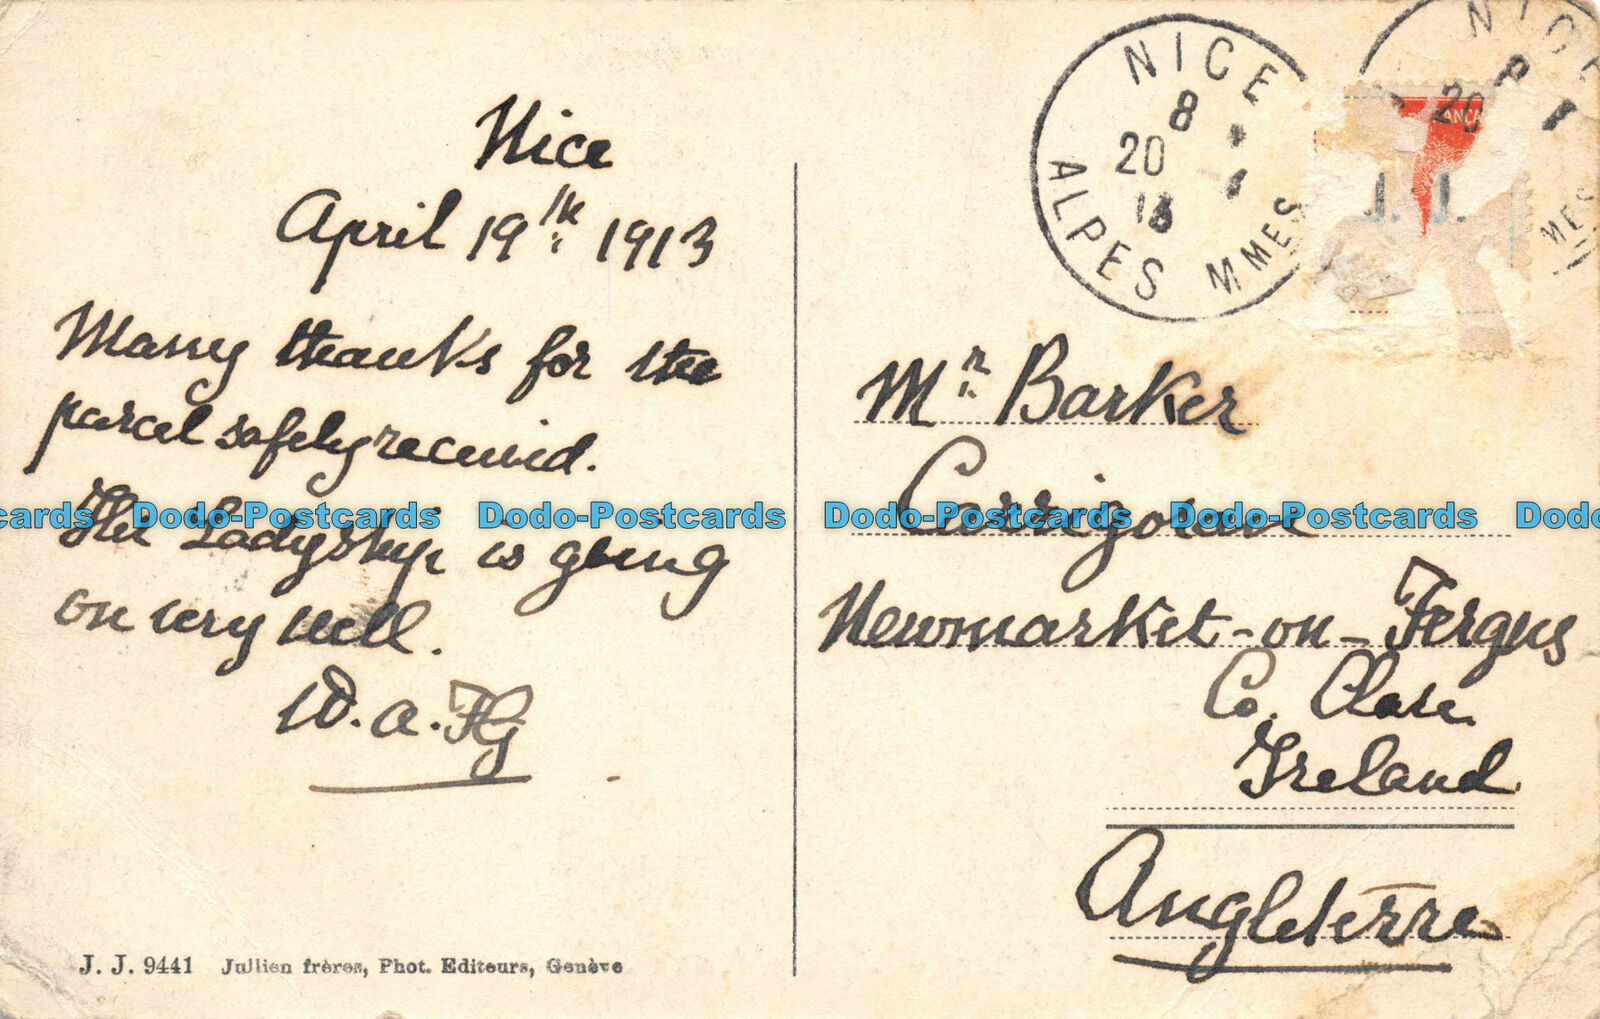 Nice
April 19th 1913
Many thanks for the
parcel safely received.
Her Ladyship is going
on very well.
W.A.FG
J. J. 9441 Jullien frères, Phot. Editeurs, Genève
NICE
8
20
13
ALPES MMES
NICE
8
20
MMES
ANCA
J. J.
Mr. Barker
Carrigoran
Newmarket-on-Fergus
Co. Clare
Ireland
Angleterre
cards Dodo-Postcards Dodo-Postcards Dodo-Postcards Dodo-Postcards Dodo